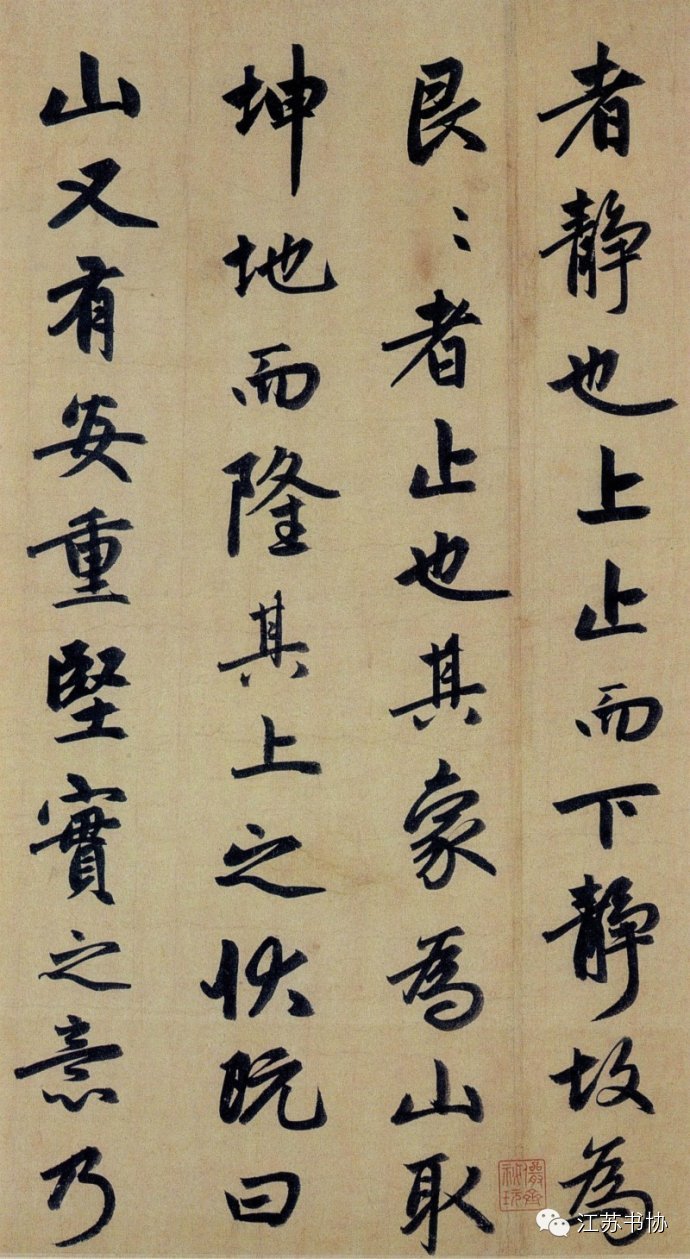 者靜也上止而下靜故為
艮〻者止也其象為山取
坤地而隆其上之状既曰
山又有安重堅實之意乃
江苏书协